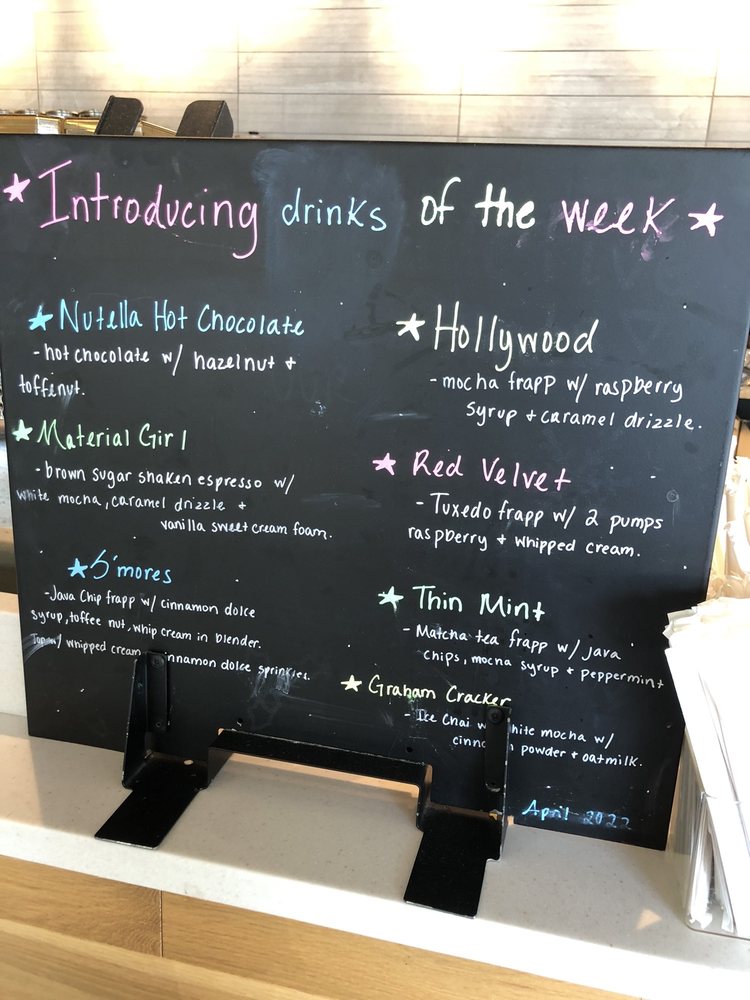 Introducing drinks of the week
Nutella Hot Chocolate
- hot chocolate w/ hazelnut +
toffinut.
Material Girl
- brown sugar shaken espresso w/
white mocha, caramel drizzle +
vanilla sweet cream foam.
S'mores
- Java Chip frapp w/ cinnamon dolce
syrup, toffee nut, whip cream in blender.
Top w/ whipped cream cinnamon dolce sprinkles.
Hollywood
- mocha frapp w/ raspberry
syrup + caramel drizzle.
Red Velvet
- Tuxedo frapp w/ 2 pumps
raspberry + whipped cream.
Thin Mint
- Matcha tea frapp w/ java
chips, mocha syrup + peppermint
Graham Cracker
- Ice Chai w/ white mocha w/
cinnamon powder + oatmilk.
April 2022